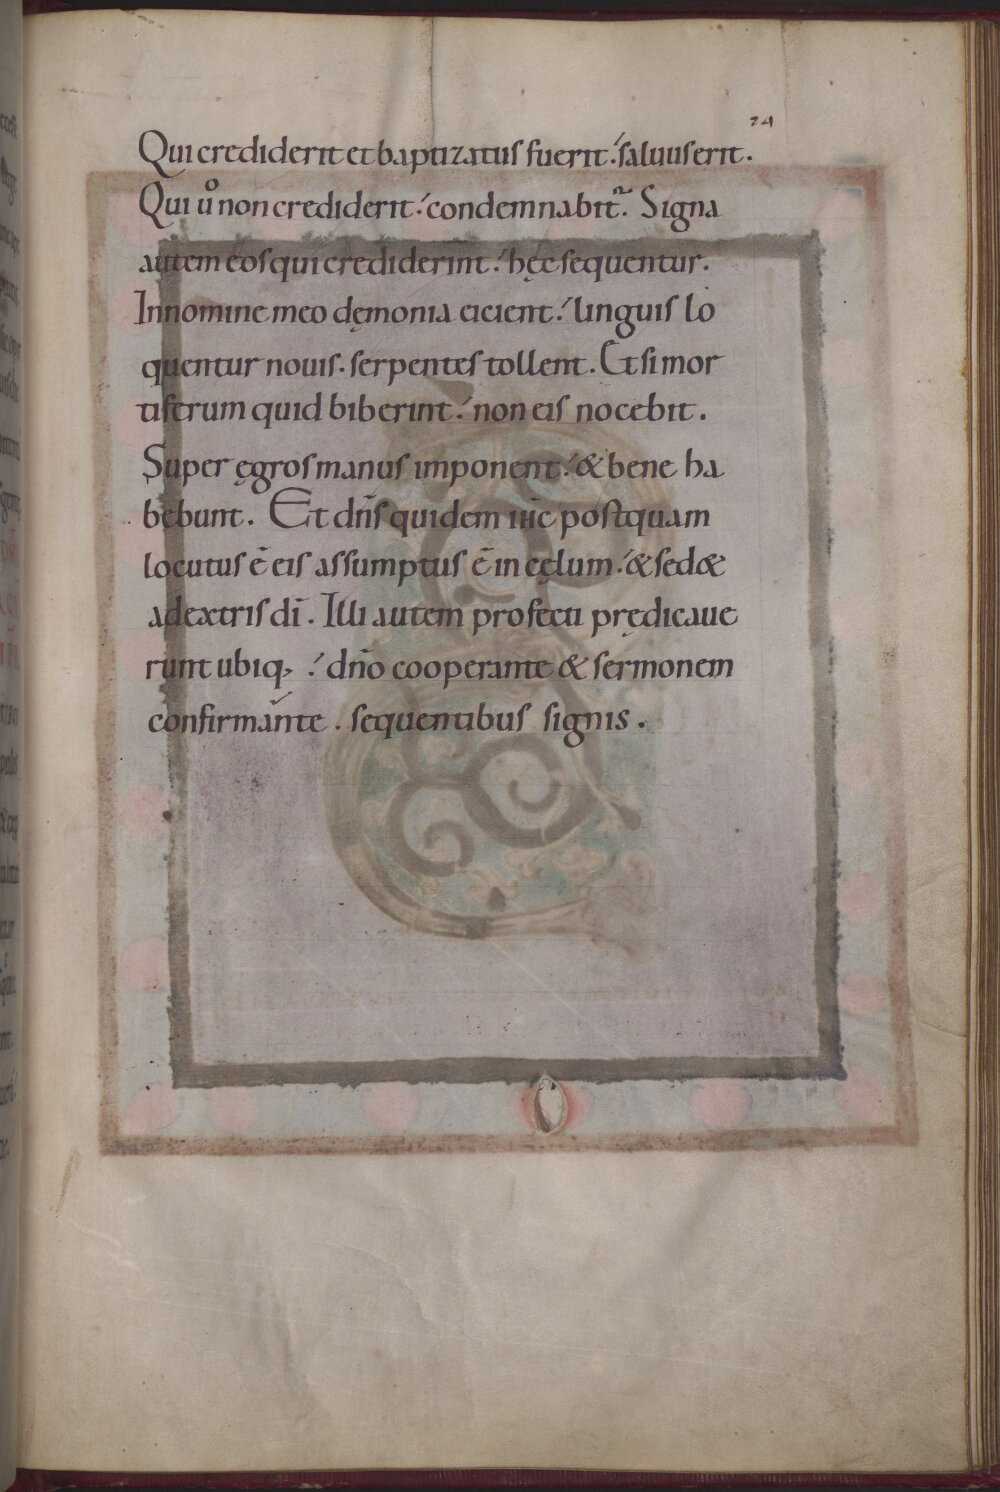 24
Qui crediderit et baptizatus fuerit. saluus erit.
Qui ů non crediderit. condemnabit̃. Signa
autem eos qui crediderint. hęc sequentur.
In nomine meo dęmonia eicient. linguis lo
quentur nouis. serpentes tollent. Et si mor
tiferum quid biberint. non eis nocebit.
Super ęgros manus imponent. & bene ha
bebunt. Et dñs quidem ihc̄ postquam
locutus ē eis assumptus ē in cęlum. & sed&
a dextris dī. Illi autem profecti prędicaue
runt ubiq; dño cooperante & sermonem
confirmante. sequentibus signis.